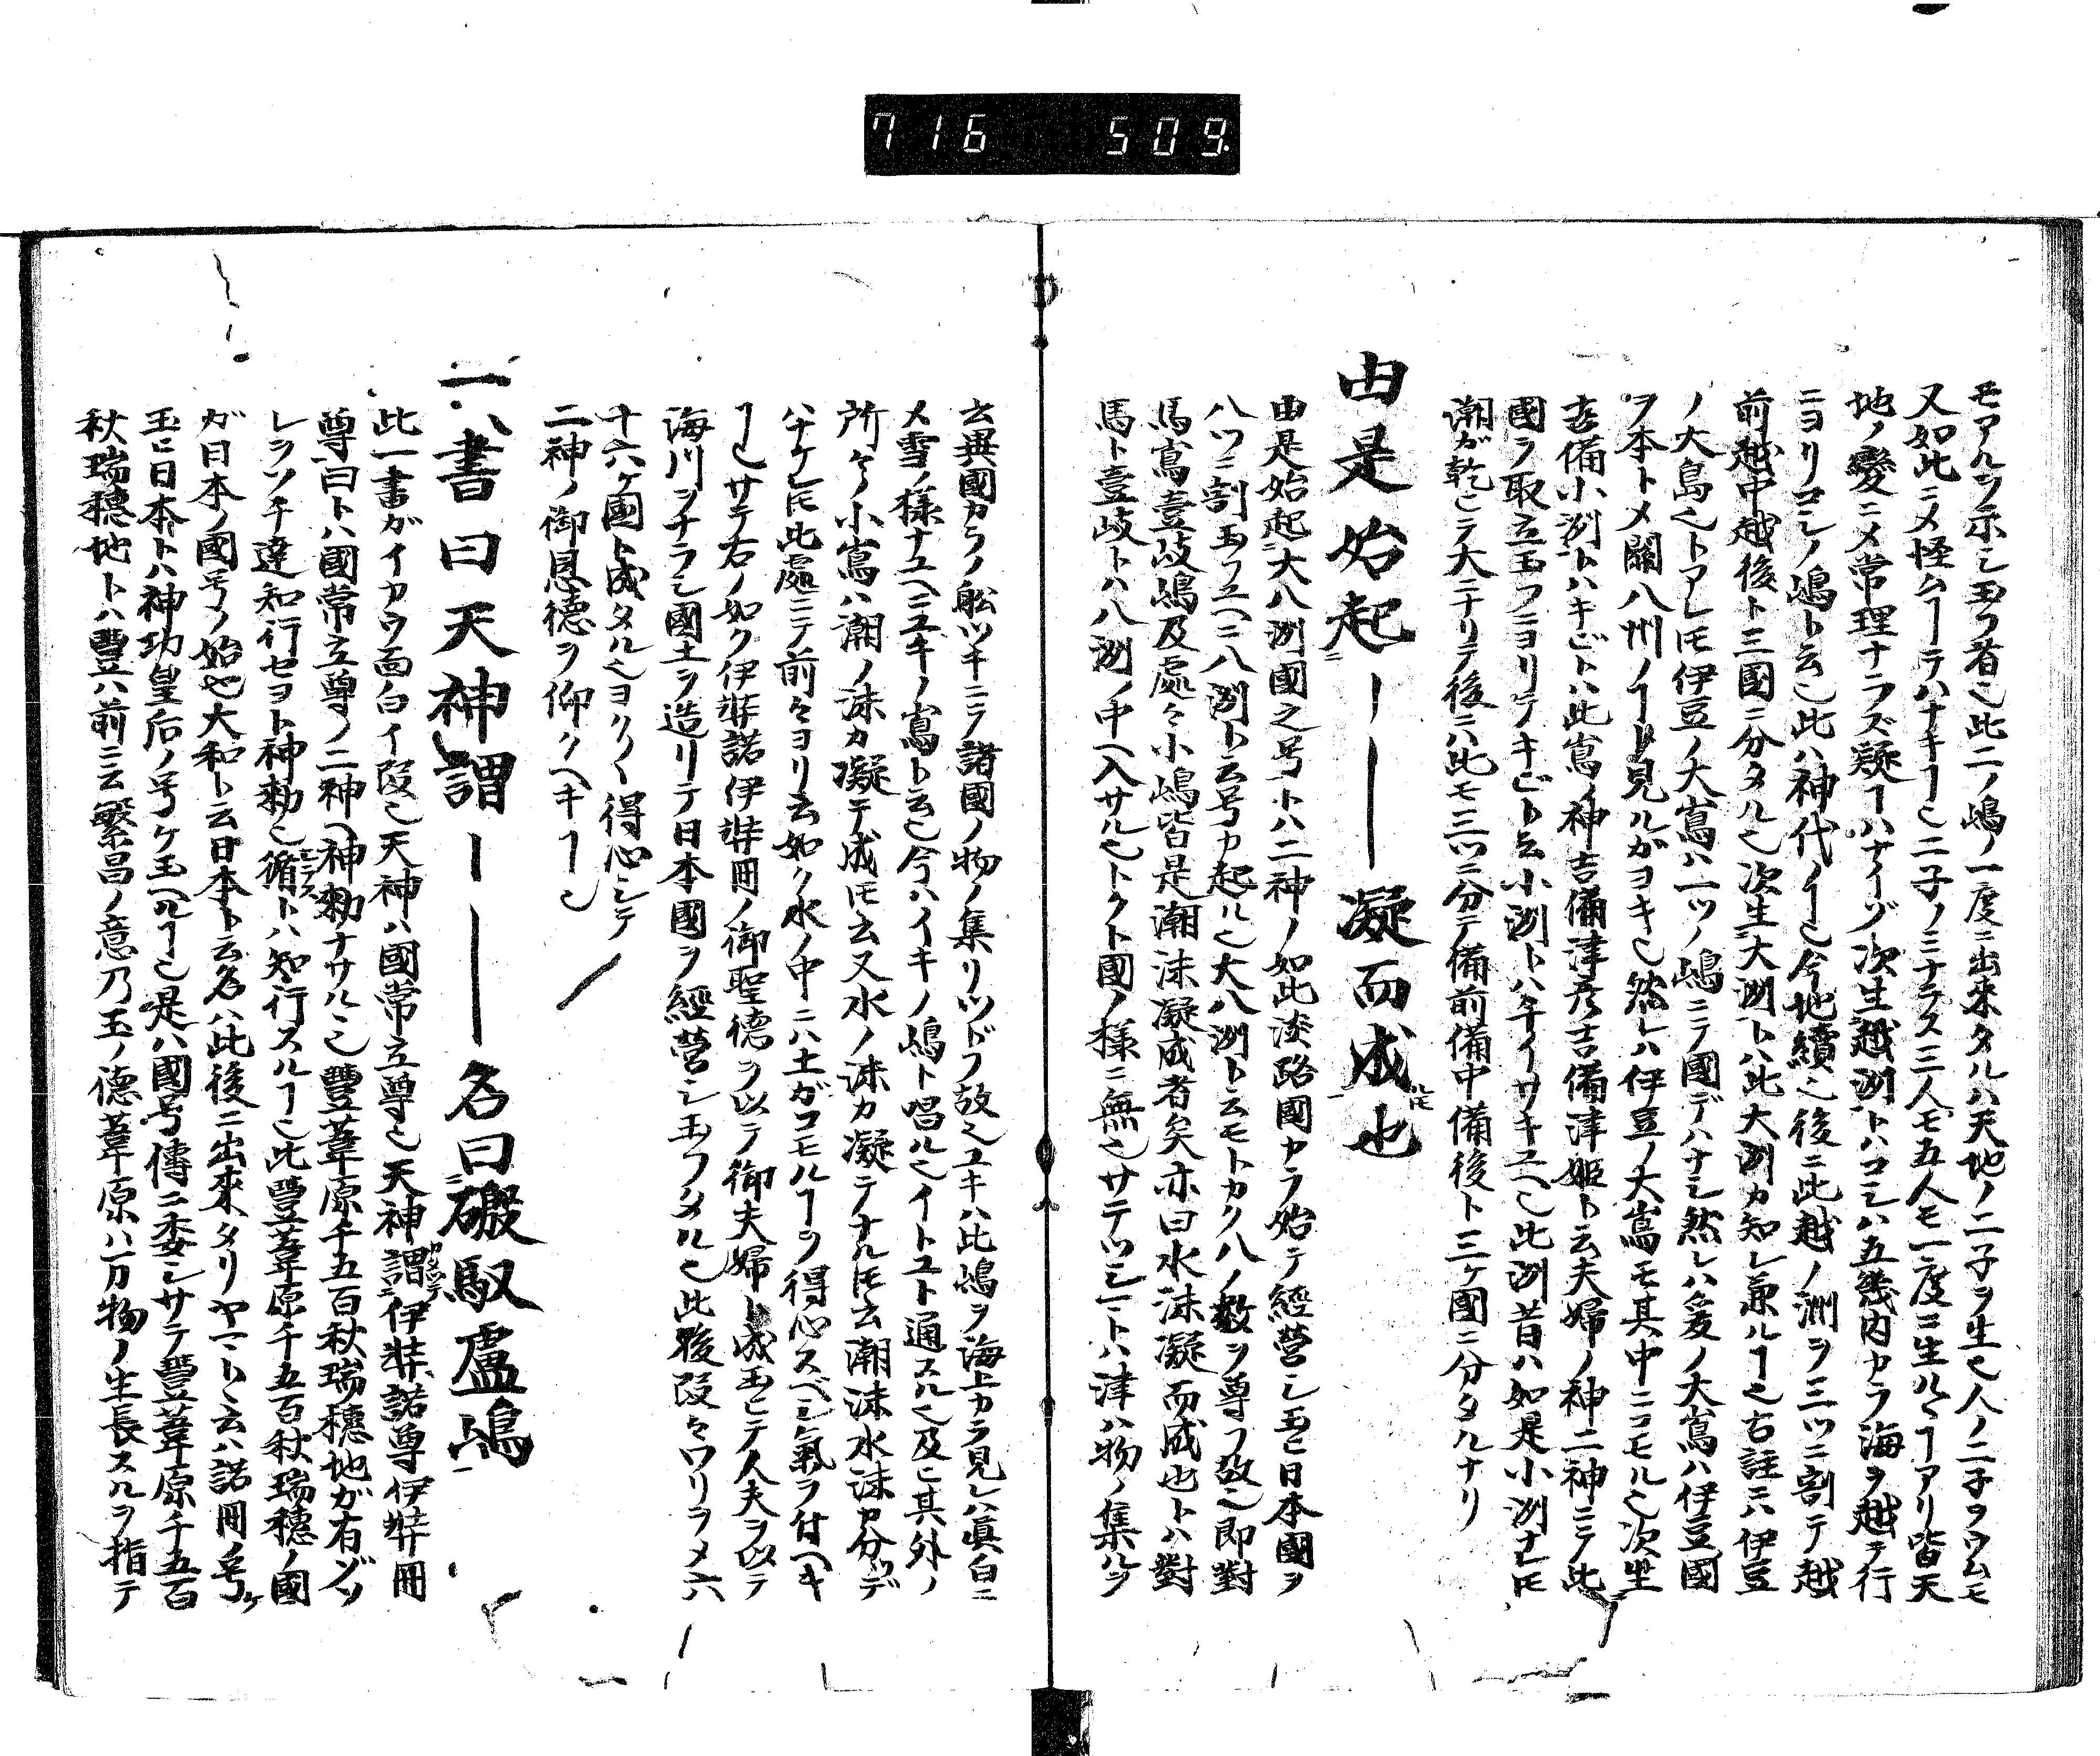 716 509
モアルヲ示シ玉フ者也此二ノ嶋ノ一度ニ出来タルハ天地ノ二子ヲ生也人ノ二子ヲウムモ
又如此ニメ怪ムヿテハナキヿ也二子ノミナラス三人モ五人モ一度ニ生ルヽヿアリ皆天
地ノ變ニメ常理ナラズ疑ヿハナイゾ次生越洲トハコシハ五畿内カラ海ヲ越テ行
ニヨリコシノ嶋ト云也此ハ神代ノヿ也今地續也後ニ此越ノ洲ヲ三ツニ割テ越
前越中越後ト三國ニ分タル也次生大洲トハ此大洲カ知レ兼ルヿ也古註ニハ伊豆
ノ大島也トアレ𪜈伊豆ノ大嶌ハ一ツノ嶋ニテ國デハナシ然レハ爰ノ大嶌ハ伊豆國
ヲ本トメ關八州ノヿト見ルガヨキ也然レハ伊豆ノ大嶌モ其中ニコモル也次生
吉備小洲トハキビトハ此嶌ノ神吉備津彦吉備津姫ト云夫婦ノ神二神ニテ此
國ヲ取立玉フニヨリテキビト云小洲トハチイサキユヘ也此洲昔ハ如是小洲ナレ𪜈
潮ガ乾也ラ大ニナリテ後ニハ此モ三ツニ分テ備前備中備後ト三ケ國ニ分タルナリ
由是始起ーー凝而成也
由是始起大八洲國之号トハ二神ノ如此淡路國カラ始テ經營シ玉ヒ日本國ヲ
八ツニ割玉フユヘニ八洲ト云号カ起ル也大八洲ト云モトカク八ノ數ヲ尊フ故也即對
馬嶌壹岐嶋及處々小嶋皆是潮沫凝成者矣亦曰水沫凝而成也トハ對
馬ト壹岐トハ八洲ノ中ヘ入サル也トクト國ノ様ニ無也サテツシマトハ津ハ物ノ集ルヲ
云異國カラノ舩ツキニテ諸國ノ物ノ集リツドフ故也ユキハ此嶋ヲ海上カラ見レハ眞白ニ
メ雪ノ様ナユヘニユキノ嶌ト云也今ハイキノ嶋ト唱ル也イトユト通スル也及ヒ其外ノ
所々ノ小嶌ハ潮ノ沫カ凝テ成𪜈云又水ノ沫カ凝テナル𪜈云潮沫水沫カ分ツデ
ハナケレ𪜈此處ニテ前々ヨリ云如ク水ノ中ニハ土ガコモルヿヲ得心スベシ氣ヲ付ヘキ
ヿ也サテ右ノ如ク伊弉諾伊弉冊ノ御聖德ヲ以テ御夫婦ト成玉ヒテ人夫ヲ以テ
海川ヲチラシ國土ヲ造リテ日本國ヲ經營シ玉フタル也此後段々ワリヲメ六
十六ケ國ト成タル也ヨク〱得心シテ
二神ノ御恩德ヲ仰クヘキヿ也
一書曰天神謂ーー名曰磤馭盧嶋
此一書ガイカウ面白イ段也天神ハ國常立尊也天神謂伊弉諾尊伊弉冊
尊曰トハ國常立尊ノ二神ヘ神勅ナサルヽ也豐葦原千五百秋瑞穗地ガ有ゾソ
レヲソチ達知行セヨト神勅也循トハ知行スルヿ也此豐葦原千五百秋瑞穗ノ國
ガ日本ノ國号ノ始也大和ト云日本ト云名ハ此後ニ出來タリヤマトヽ云ハ諾冊ノ号ケ
玉ヒ日本トハ神功皇后ノ号ケ玉ヘルヿ也是ハ國号傳ニ委シサテ豐葦原千五百
秋瑞穗地トハ豐ハ前ニ云繁昌ノ意乃玉ノ德葦原ハ万物ノ生長スルヲ指テ